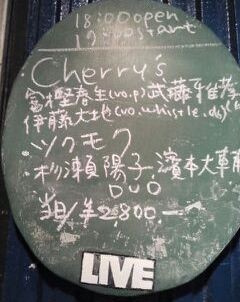 18:00open
19:00start
・Cherry's
富樫春生(vo.p)武藤祐
伊藤大地(vo.whistle.ds)
・ツクモク
・杉瀬陽子.濱本大車
DUO
当日/¥2,800.―
LIVE